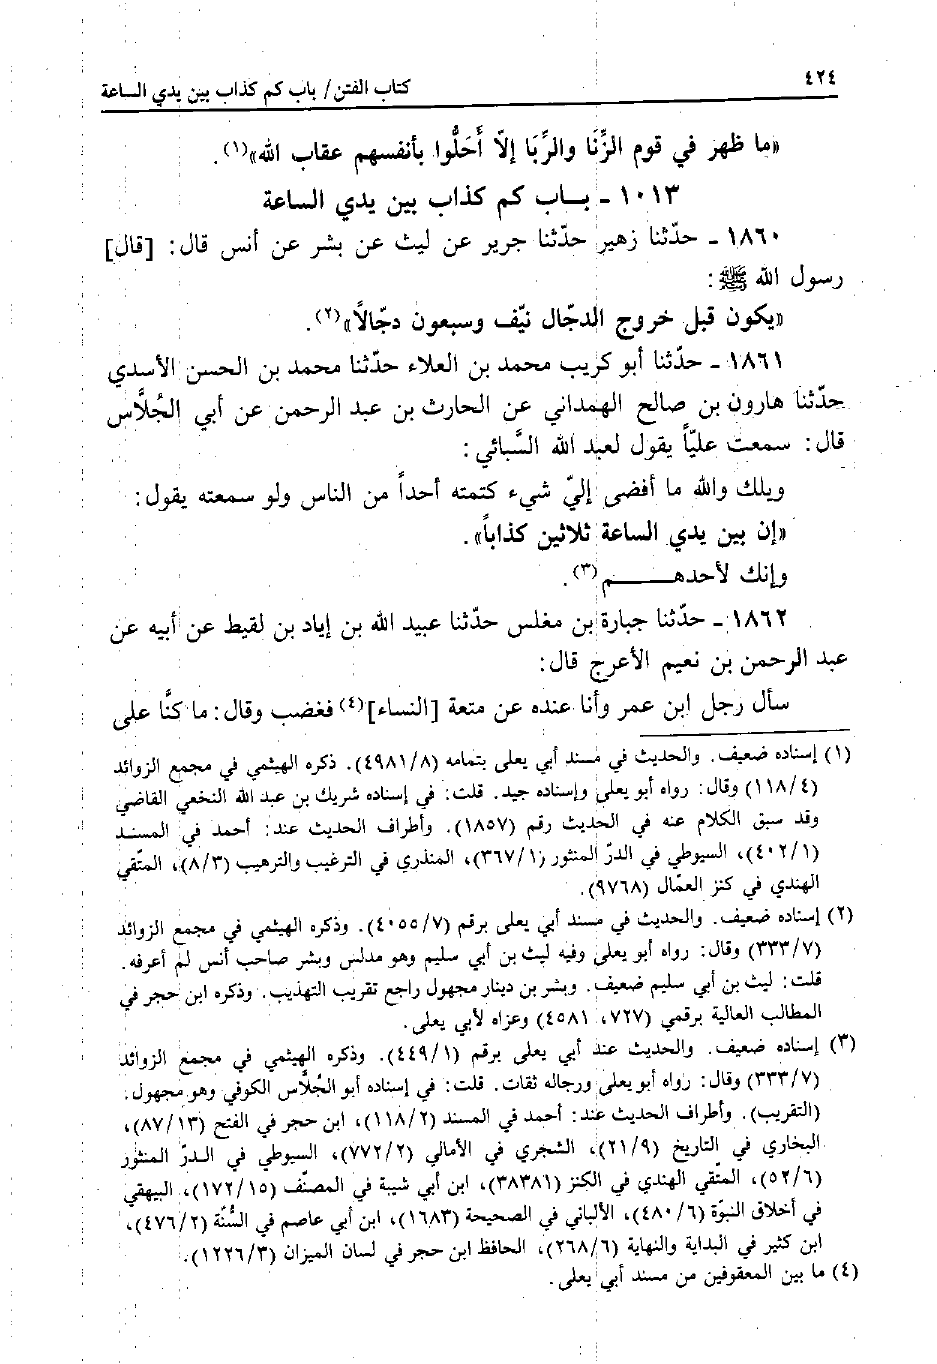 ٤٢٤
كتاب الفتن/ باب كم كذاب بين يدي الساعة
«ما ظهر في قوم الزِّنَا والرِّبَا إلاّ أَحَلُّوا بأنفسهم عقاب الله»(١).
١٠١٣ - بـاب كم كذاب بين يدي الساعة
١٨٦٠ - حدّثنا زهير حدّثنا جرير عن ليث عن بشر عن أنس قال: [قال]
رسول الله ﷺ:
«يكون قبل خروج الدجّال نيّف وسبعون دجّالاً»(٢).
١٨٦١ - حدّثنا أبو كريب محمد بن العلاء حدّثنا محمد بن الحسن الأسدي
حدّثنا هارون بن صالح الهمداني عن الحارث بن عبد الرحمن عن أبي الجُلَّاس
قال: سمعت عليّاً يقول لعبد الله السَّبائي:
ويلك والله ما أفضى إليّ شيء كتمته أحداً من الناس ولو سمعته يقول:
«إن بين يدي الساعة ثلاثين كذاباً».
وإنك لأحدهـــم(٣).
١٨٦٢ - حدّثنا جبارة بن مغلس حدّثنا عبيد الله بن إياد بن لقيط عن أبيه عن
عبد الرحمن بن نعيم الأعرج قال:
سأل رجل ابن عمر وأنا عنده عن متعة [النساء](٤) فغضب وقال: ما كنَّا على
(١) إسناده ضعيف. والحديث في مسند أبي يعلى بتمامه (٤٩٨١/٨). ذكره الهيثمي في مجمع الزوائد
(١١٨/٤) وقال: رواه أبو يعلى وإسناده جيد. قلت: في إسناده شريك بن عبد الله النخعي القاضي
وقد سبق الكلام عنه في الحديث رقم (١٨٥٧). وأطراف الحديث عند: أحمد في المسند
(٤٠٢/١)، السيوطي في الدرّ المنثور (٣٦٧/١)، المنذري في الترغيب والترهيب (٨/٣)، المتّقي
الهندي في كنز العمّال (٩٧٦٨).
(٢) إسناده ضعيف. والحديث في مسند أبي يعلى برقم (٤٠٥٥/٧). وذكره الهيثمي في مجمع الزوائد
(٣٣٣/٧) وقال: رواه أبو يعلى وفيه ليث بن أبي سليم وهو مدلس وبشر صاحب أنس لم أعرفه.
قلت: ليث بن أبي سليم ضعيف. وبشر بن دينار مجهول راجع تقريب التهذيب. وذكره ابن حجر في
المطالب العالية برقمي (٧٢٧، ٤٥٨١) وعزاه لأبي يعلى.
(٣) إسناده ضعيف. والحديث عند أبي يعلى برقم (٤٤٩/١). وذكره الهيثمي في مجمع الزوائد
(٣٣٣/٧) وقال: رواه أبو يعلى ورجاله ثقات. قلت: في إسناده أبو الجُلَّاس الكوفي وهو مجهول.
(التقريب). وأطراف الحديث عند: أحمد في المسند (١١٨/٢)، ابن حجر في الفتح (٨٧/١٣)،
البخاري في التاريخ (٢١/٩)، الشجري في الأمالي (٧٧٢/٢)، السيوطي في الـدرّ المنثور
(٥٢/٦)، المتّقي الهندي في الكنز (٣٨٣٨١)، ابن أبي شيبة في المصنّف (١٧٢/١٥)، البيهقي
في أخلاق النبوّة (٤٨٠/٦)، الألباني في الصحيحة (١٦٨٣)، ابن أبي عاصم في السُّنَّة (٤٧٦/٢)،
ابن كثير في البداية والنهاية (٢٦٨/٦)، الحافظ ابن حجر في لسان الميزان (١٢٢٦/٣).
(٤) ما بين المعقوفين من مسند أبي يعلى.